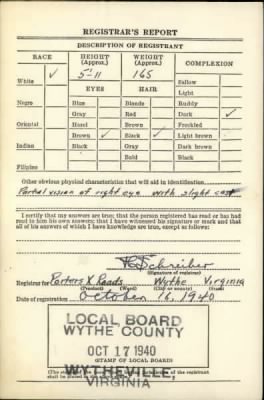 REGISTRAR'S REPORT
DESCRIPTION OF REGISTRANT
RACE HEIGHT (Approx.) WEIGHT (Approx.) COMPLEXION
White ✓ 5-11 165 Sallow
EYES HAIR Light
Negro Blue Blonde Ruddy
Gray Red Dark ✓
Oriental Hazel Brown Freckled
Brown ✓ Black ✓ Light brown
Indian Black Gray Dark brown
Bald Black
Filipino
Other obvious physical characteristics that will aid in identification
Partial vision of right eye with slight cast
I certify that my answers are true; that the person registered has read or has had
read to him his own answers; that I have witnessed his signature or mark and that
all of his answers of which I have knowledge are true, except as follows:
Schreiber
(Signature of registrar)
Registrar for Porters X Roads Wythe Virginia
(Precinct) (Ward) (City or county) (State)
Date of registration October 16, 1940
LOCAL BOARD
WYTHE COUNTY
OCT 17 1940
(STAMP OF LOCAL BOARD)
WYTHEVILLE
VIRGINIA